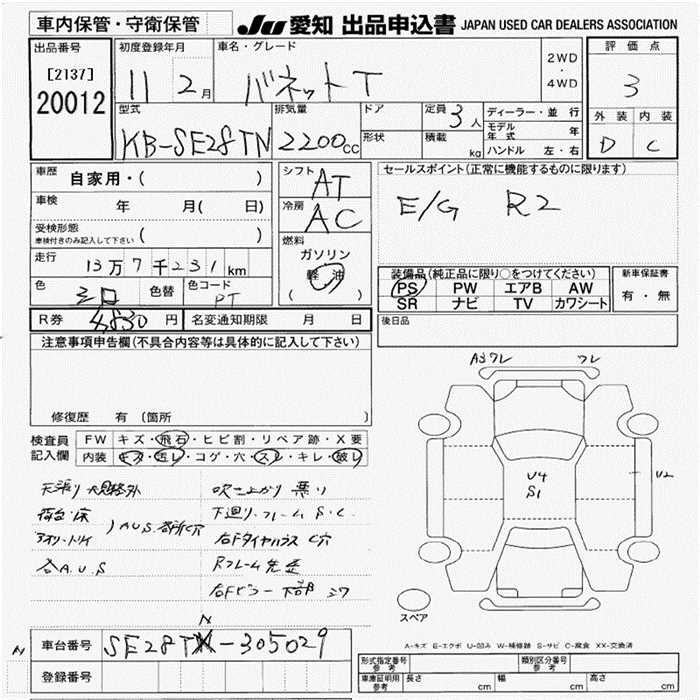 車内保管・守衛保管 JU 愛知 出品申込書 JAPAN USED CAR DEALERS ASSOCIATION
出品番号 初度登録年月 車名・グレード 2WD・4WD 評価点
[2137] 20012 11 2月 バネットT 3
型式 排気量 ドア 定員 3人 ディーラー・並行 外装 内装
モデル年式 年
KB-SE28TN 2200cc 形状 積載 kg ハンドル 左・右 D C
車歴 自家用・( ) シフト AT セールスポイント(正常に機能するものに限ります)
車検 年 月( 日) 冷房 AC E/G R2
受検形態 ( )
車検付きのみ記入して下さい
燃料 ガソリン
走行 13万7千231km 軽油 装備品(純正品に限り○をつけてください) 新車保証書
( ) PS PW エアB AW 有・無
色 色替 色コード PT SR ナビ TV カワシート
R券 4,830円 名変通知期限 月 日 後日品
注意事項申告欄(不具合内容等は具体的に記入して下さい)
A3ワレ ワレ
修復歴 有 〔箇所 〕
検査員 FW キズ・飛石・ヒビ割・リペア跡・X要
記入欄 内装 キズ・汚レ・コゲ・穴・スレ・キレ・破レ
U4
S1
U2
天張り 規格外 吹き上がり 悪り
荷台・床 下廻り・フレーム S・C
アオリ・トリイ AUS 各所C穴 右Fタイヤハウス C穴
各A.U.S Rフレーム先
右Fピラー下部
スペア
N
N
車台番号 SE28TN-305029
A-キズ E-エクボ U-凹み W-補修跡 S-サビ C-腐食 XX-交換済
型式指定番号 参考 類別区分番号 参考
登録番号 車庫証明用 参考 長さ cm 幅 cm 高さ cm